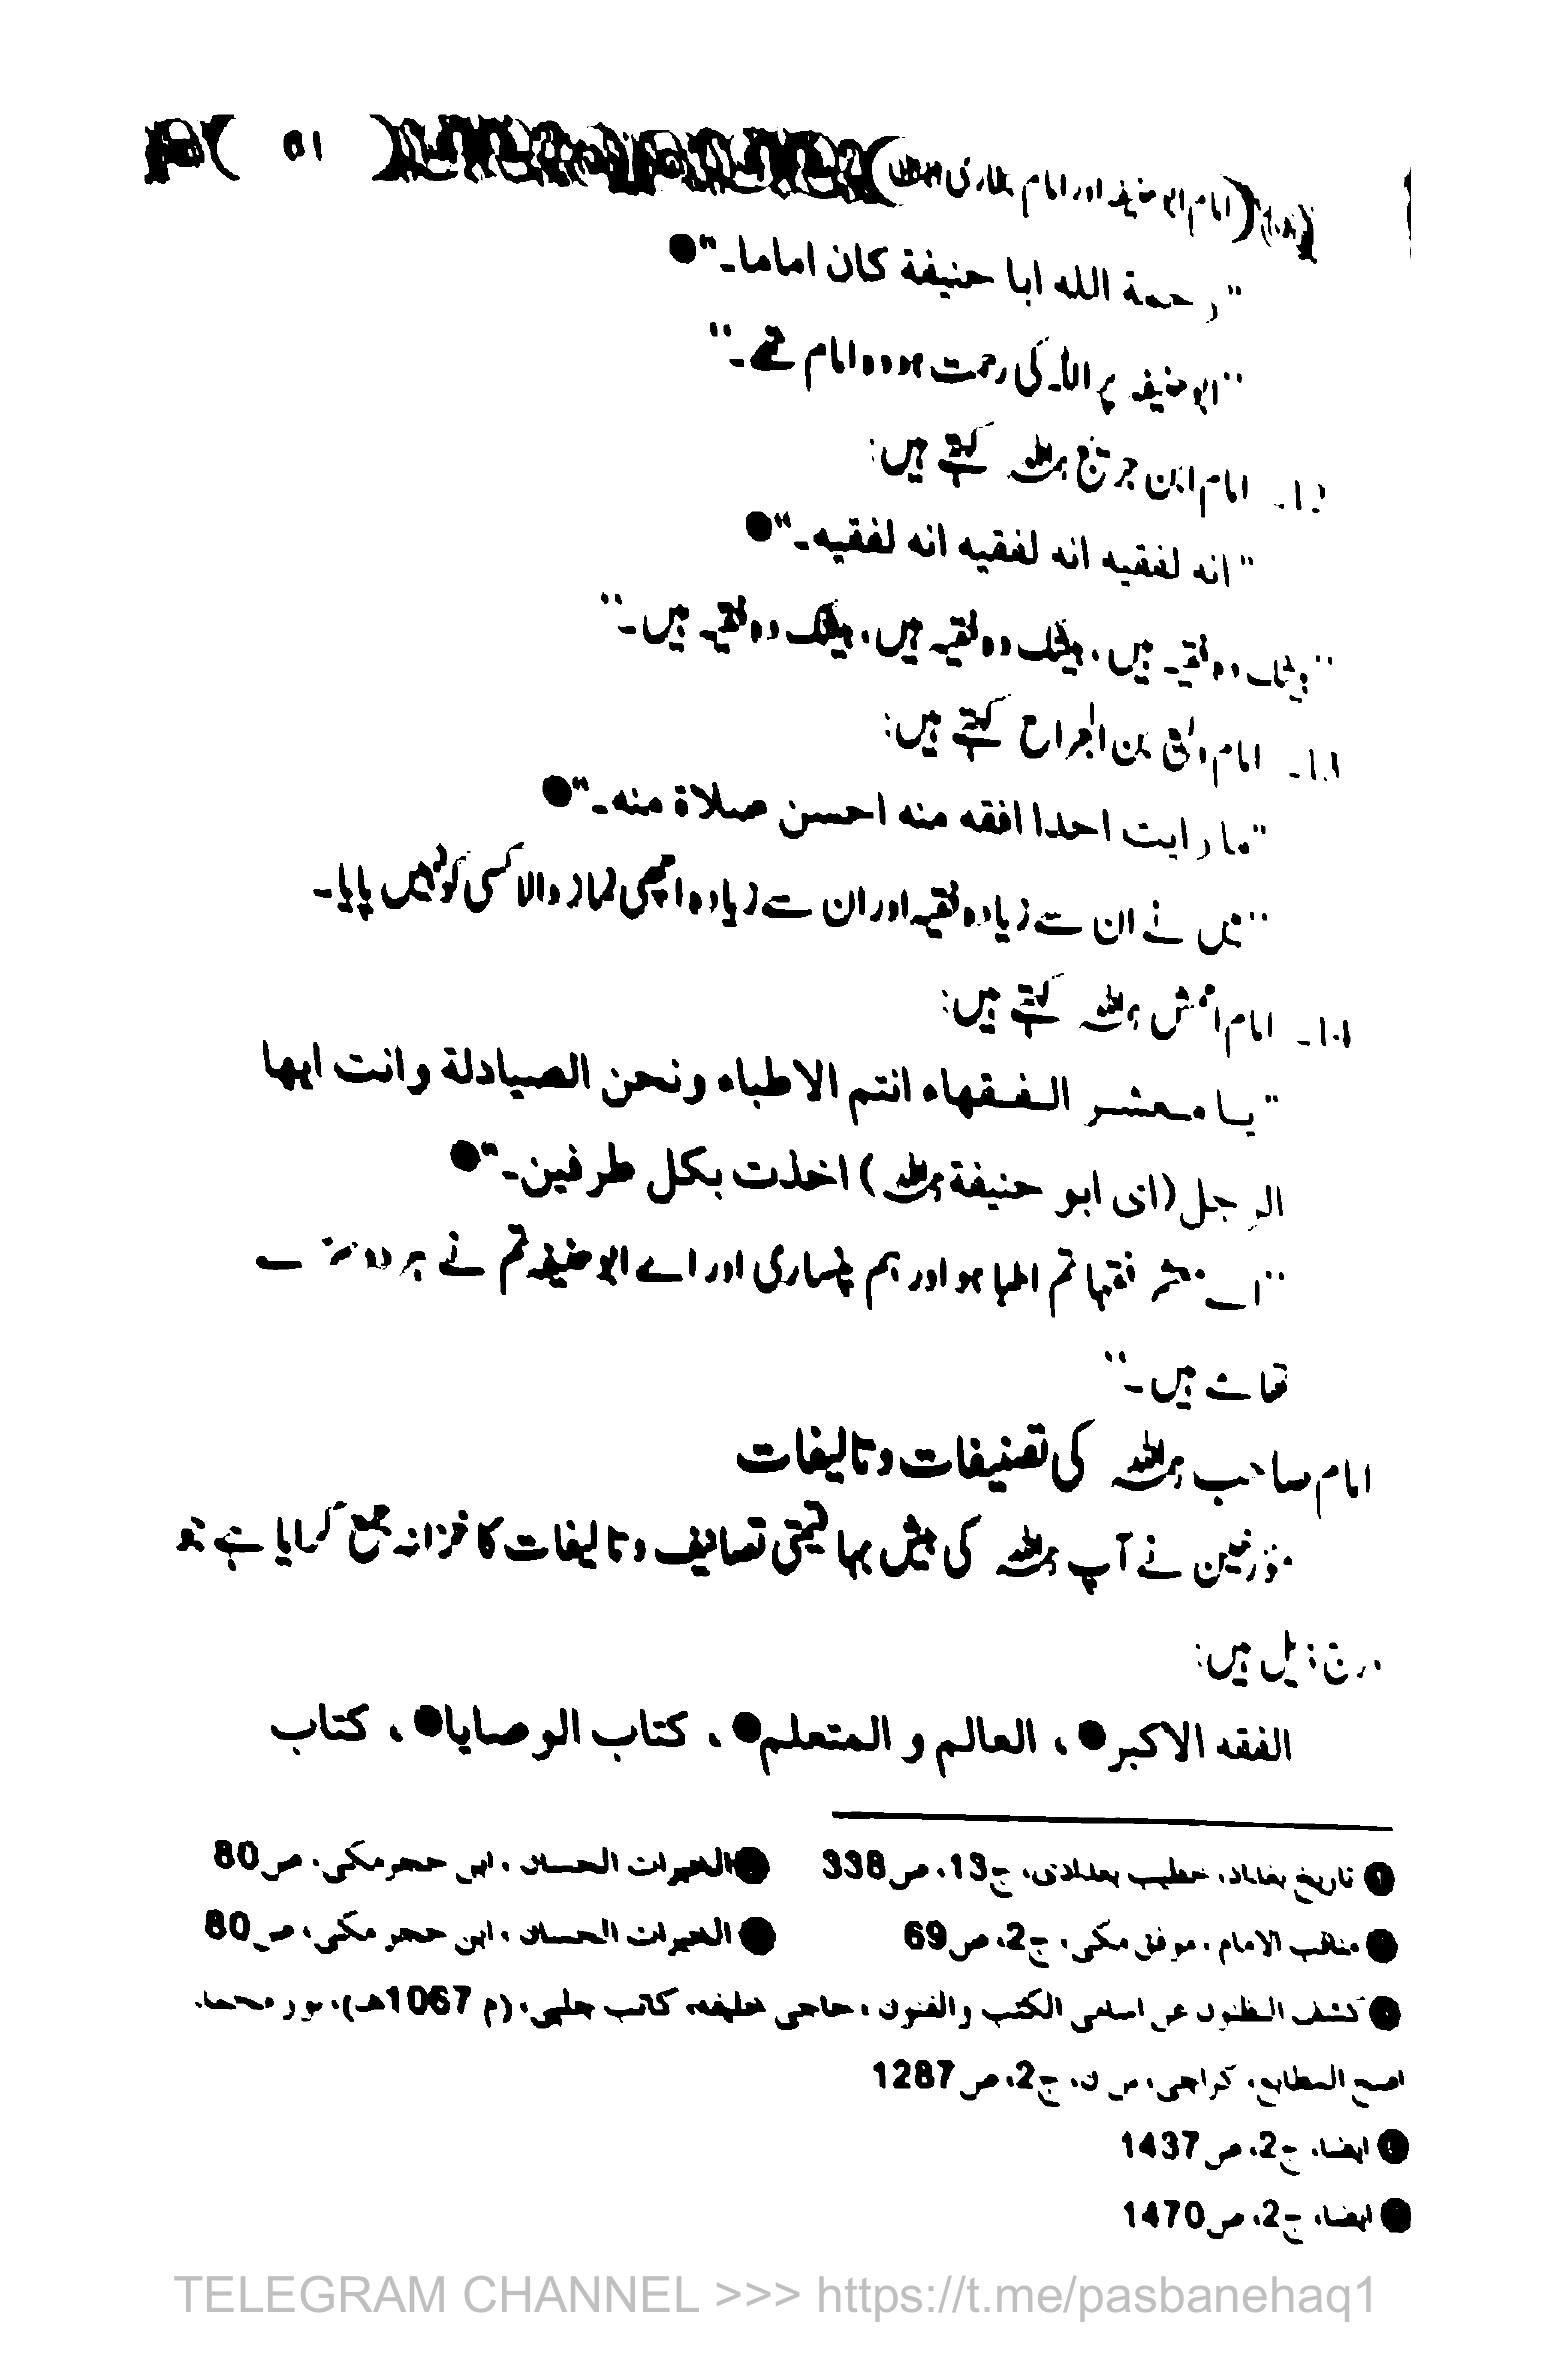 امام ابو حنیفہ اور امام بخاری
۵۱
"رحمة الله ابا حنيفة كان اماما۔"
"ابو حنیفہ پر اللہ کی رحمت ہو وہ امام تھے۔"
امام ابن جریج رحمہ اللہ کہتے ہیں:
"انه لفقيه انه لفقيه انه لفقيه۔"
"بیشک وہ فقیہ ہیں، بیشک وہ فقیہ ہیں، بیشک وہ فقیہ ہیں۔"
امام وکیع بن الجراح کہتے ہیں:
"ما رايت احدا افقه منه احسن صلاة منه۔"
"میں نے ان سے زیادہ فقیہ اور ان سے زیادہ اچھی نماز والا کسی کو نہیں پایا۔
امام اعمش رحمہ اللہ کہتے ہیں:
"يا معشر الفقهاء انتم الاطباء ونحن الصيادلة وانت ايها
الرجل (ای ابو حنيفة رحمہ اللہ) اخذت بكل طرفين۔"
"اے معشر فقہا تم اطبا ہو اور ہم پنساری اور اے ابو حنیفہ تم نے ہر دو
تھامے ہیں۔"
امام صاحب رحمہ اللہ کی تصنیفات و تالیفات
مؤرخین نے آپ رحمہ اللہ کی بیش بہا قیمتی تصانیف و تالیفات کا خزانہ جمع کرایا ہے جو
درج ذیل ہیں:
الفقه الاكبر، العالم و المتعلم، كتاب الوصايا، كتاب
تاریخ بغداد، خطیب بغدادی، ج13، ص338
الخیرات الحسان، ابن حجر مکی، ص80
مناقب الامام، موفق مکی، ج2، ص69
الخیرات الحسان، ابن حجر مکی، ص80
کشف الظنون عن اسامی الکتب والفنون، حاجی خلیفہ، کاتب چلپی، (م 1067ھ)، نور محمد،
اصح المطابع، کراچی، س ن، ج2، ص1287
ایضا، ج2، ص1437
ایضا، ج2، ص1470
TELEGRAM CHANNEL >>> https://t.me/pasbanehaq1